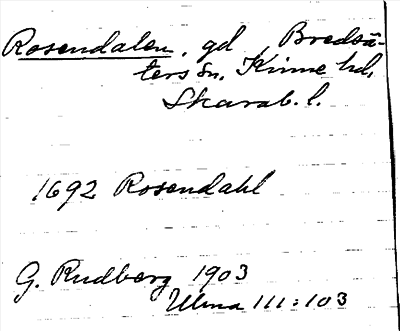 Rosendalen, gd Bredsä-
ters sn, Kinne hd,
Skarab. l.
1692 Rosendahl
G. Rudberg 1903
Ulma 111:103